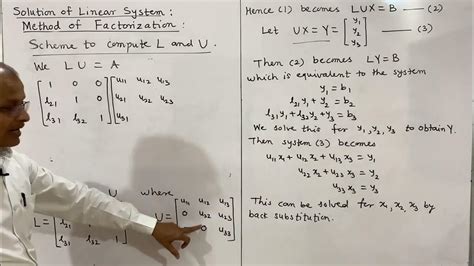 Solution of Linear System :
Method of Factorization :
Scheme to compute L and U .
We L U = A
[ 1 0 0 ] [ u11 u12 u13
[ l21 1 0 ] u21 u22 u23
[ l31 l32 1 ]
U where
L = [ l21
l31 l32 1 ]
U = [ u11 u12 u13
0 u22 u23
0 u33 ]
Hence (1) becomes LUX = B — (2)
Let UX = Y = [ y1
y2
y3 ] — (3)
Then (2) becomes LY = B
which is equivalent to the system
y1 = b1
l21 y1 + y2 = b2
l31 y1 + l32 y2 + y3 = b3
We solve this for y1, y2, y3 to obtain Y.
Then system (3) becomes
u11 x1 + u12 x2 + u13 x3 = y1
u22 x2 + u23 x3 = y2
u33 x3 = y3
This can be solved for x1, x2, x3 by
back substitution.